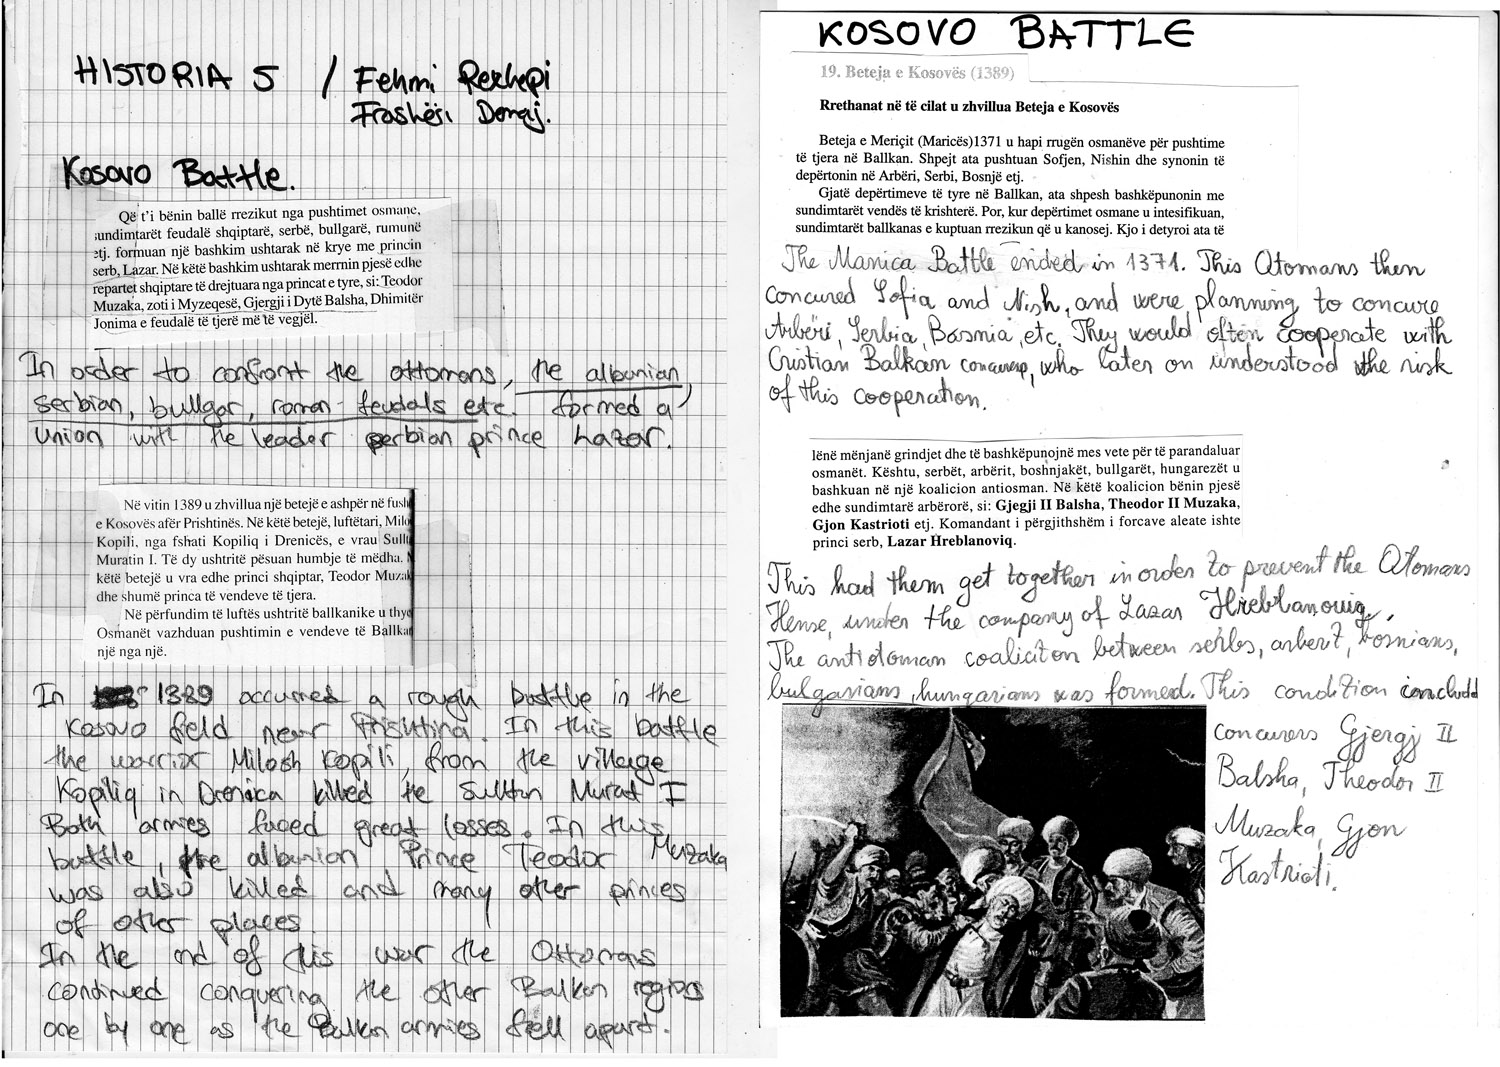 HISTORIA 5 / Fehmi Rexhepi
Frashëri Demaj.
Kosovo Battle.
Që t'i bënin ballë rrezikut nga pushtimet osmane,
sundimtarët feudalë shqiptarë, serbë, bullgarë, rumunë
etj. formuan një bashkim ushtarak në krye me princin
serb, Lazar. Në këtë bashkim ushtarak merrnin pjesë edhe
repartet shqiptare të drejtuara nga princat e tyre, si: Teodor
Muzaka, zoti i Myzeqesë, Gjergji i Dytë Balsha, Dhimitër
Jonima e feudalë të tjerë më të vegjël.
In order to confront the ottomans, the albanian,
serbian, bullgar, roman-feudals etc. formed a
union with the leader serbian prince Lazar.
Në vitin 1389 u zhvillua një betejë e ashpër në fush
e Kosovës afër Prishtinës. Në këtë betejë, luftëtari, Milo
Kopili, nga fshati Kopiliq i Drenicës, e vrau Sull
Muratin I. Të dy ushtritë pësuan humbje të mëdha. N
këtë betejë u vra edhe princi shqiptar, Teodor Muzak
dhe shumë princa të vendeve të tjera.
Në përfundim të luftës ushtritë ballkanike u thye
Osmanët vazhduan pushtimin e vendeve të Ballkan
një nga një.
In 1389 occurred a rough battle in the
Kosovo field near Prishtina. In this battle
the warrior Milosh Kopili, from the village
Kopiliq in Drenica killed the Sulltan Murat I
Both armies faced great losses. In this
battle, the albanian Prince Teodor Muzaka
was also killed and many other princes
of other places.
In the end of this war the Ottomans
continued conquering the other Balkan regions
one by one as the Balkan armies fell apart.
KOSOVO BATTLE
19. Beteja e Kosovës (1389)
Rrethanat në të cilat u zhvillua Beteja e Kosovës
Beteja e Meriçit (Maricës)1371 u hapi rrugën osmanëve për pushtime
të tjera në Ballkan. Shpejt ata pushtuan Sofjen, Nishin dhe synonin të
depërtonin në Arbëri, Serbi, Bosnjë etj.
Gjatë depërtimeve të tyre në Ballkan, ata shpesh bashkëpunonin me
sundimtarët vendës të krishterë. Por, kur depërtimet osmane u intesifikuan,
sundimtarët ballkanas e kuptuan rrezikun që u kanosej. Kjo i detyroi ata të
The Marica Battle ended in 1371. This Otomans then
concured Sofia and Nish, and were planning to concure
Arbëri, Serbia, Bosnia, etc. They would often cooperate with
Cristian Balkan who later on understood the risk
of this cooperation.
lënë mënjanë grindjet dhe të bashkëpunojnë mes vete për të parandaluar
osmanët. Kështu, serbët, arbërit, boshnjakët, bullgarët, hungarezët u
bashkuan në një koalicion antiosman. Në këtë koalicion bënin pjesë
edhe sundimtarë arbërorë, si: Gjegji II Balsha, Theodor II Muzaka,
Gjon Kastrioti etj. Komandant i përgjithshëm i forcave aleate ishte
princi serb, Lazar Hreblanoviq.
This had them get together in order to prevent the Otomans
Hense, under the company of Lazar Hreblanoviq,
The antiotoman coaliciton between serbs, arberit, bosnians,
bulgarians, hungarians was formed. This condition included
concurers Gjergj II
Balsha, Theodor II
Muzaka, Gjon
Kastrioti.